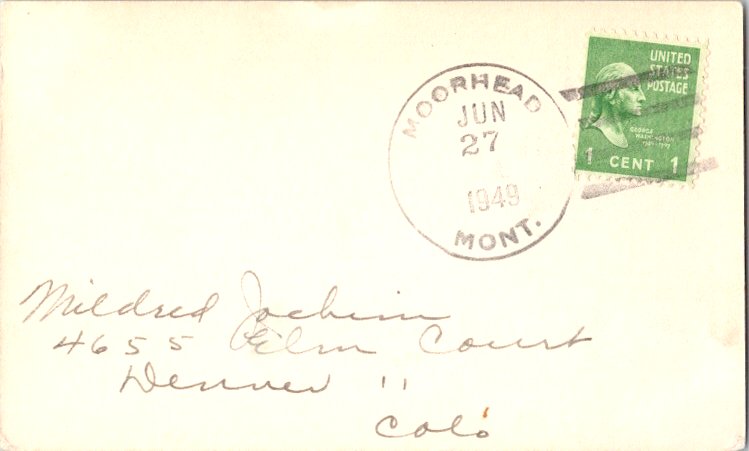 MOORHEAD
JUN
27
1949
MONT.
UNITED
STATES
POSTAGE
GEORGE
WASHINGTON
1 CENT 1
Mildred Jochim
4655 Elm Court
Denver 11
Colo